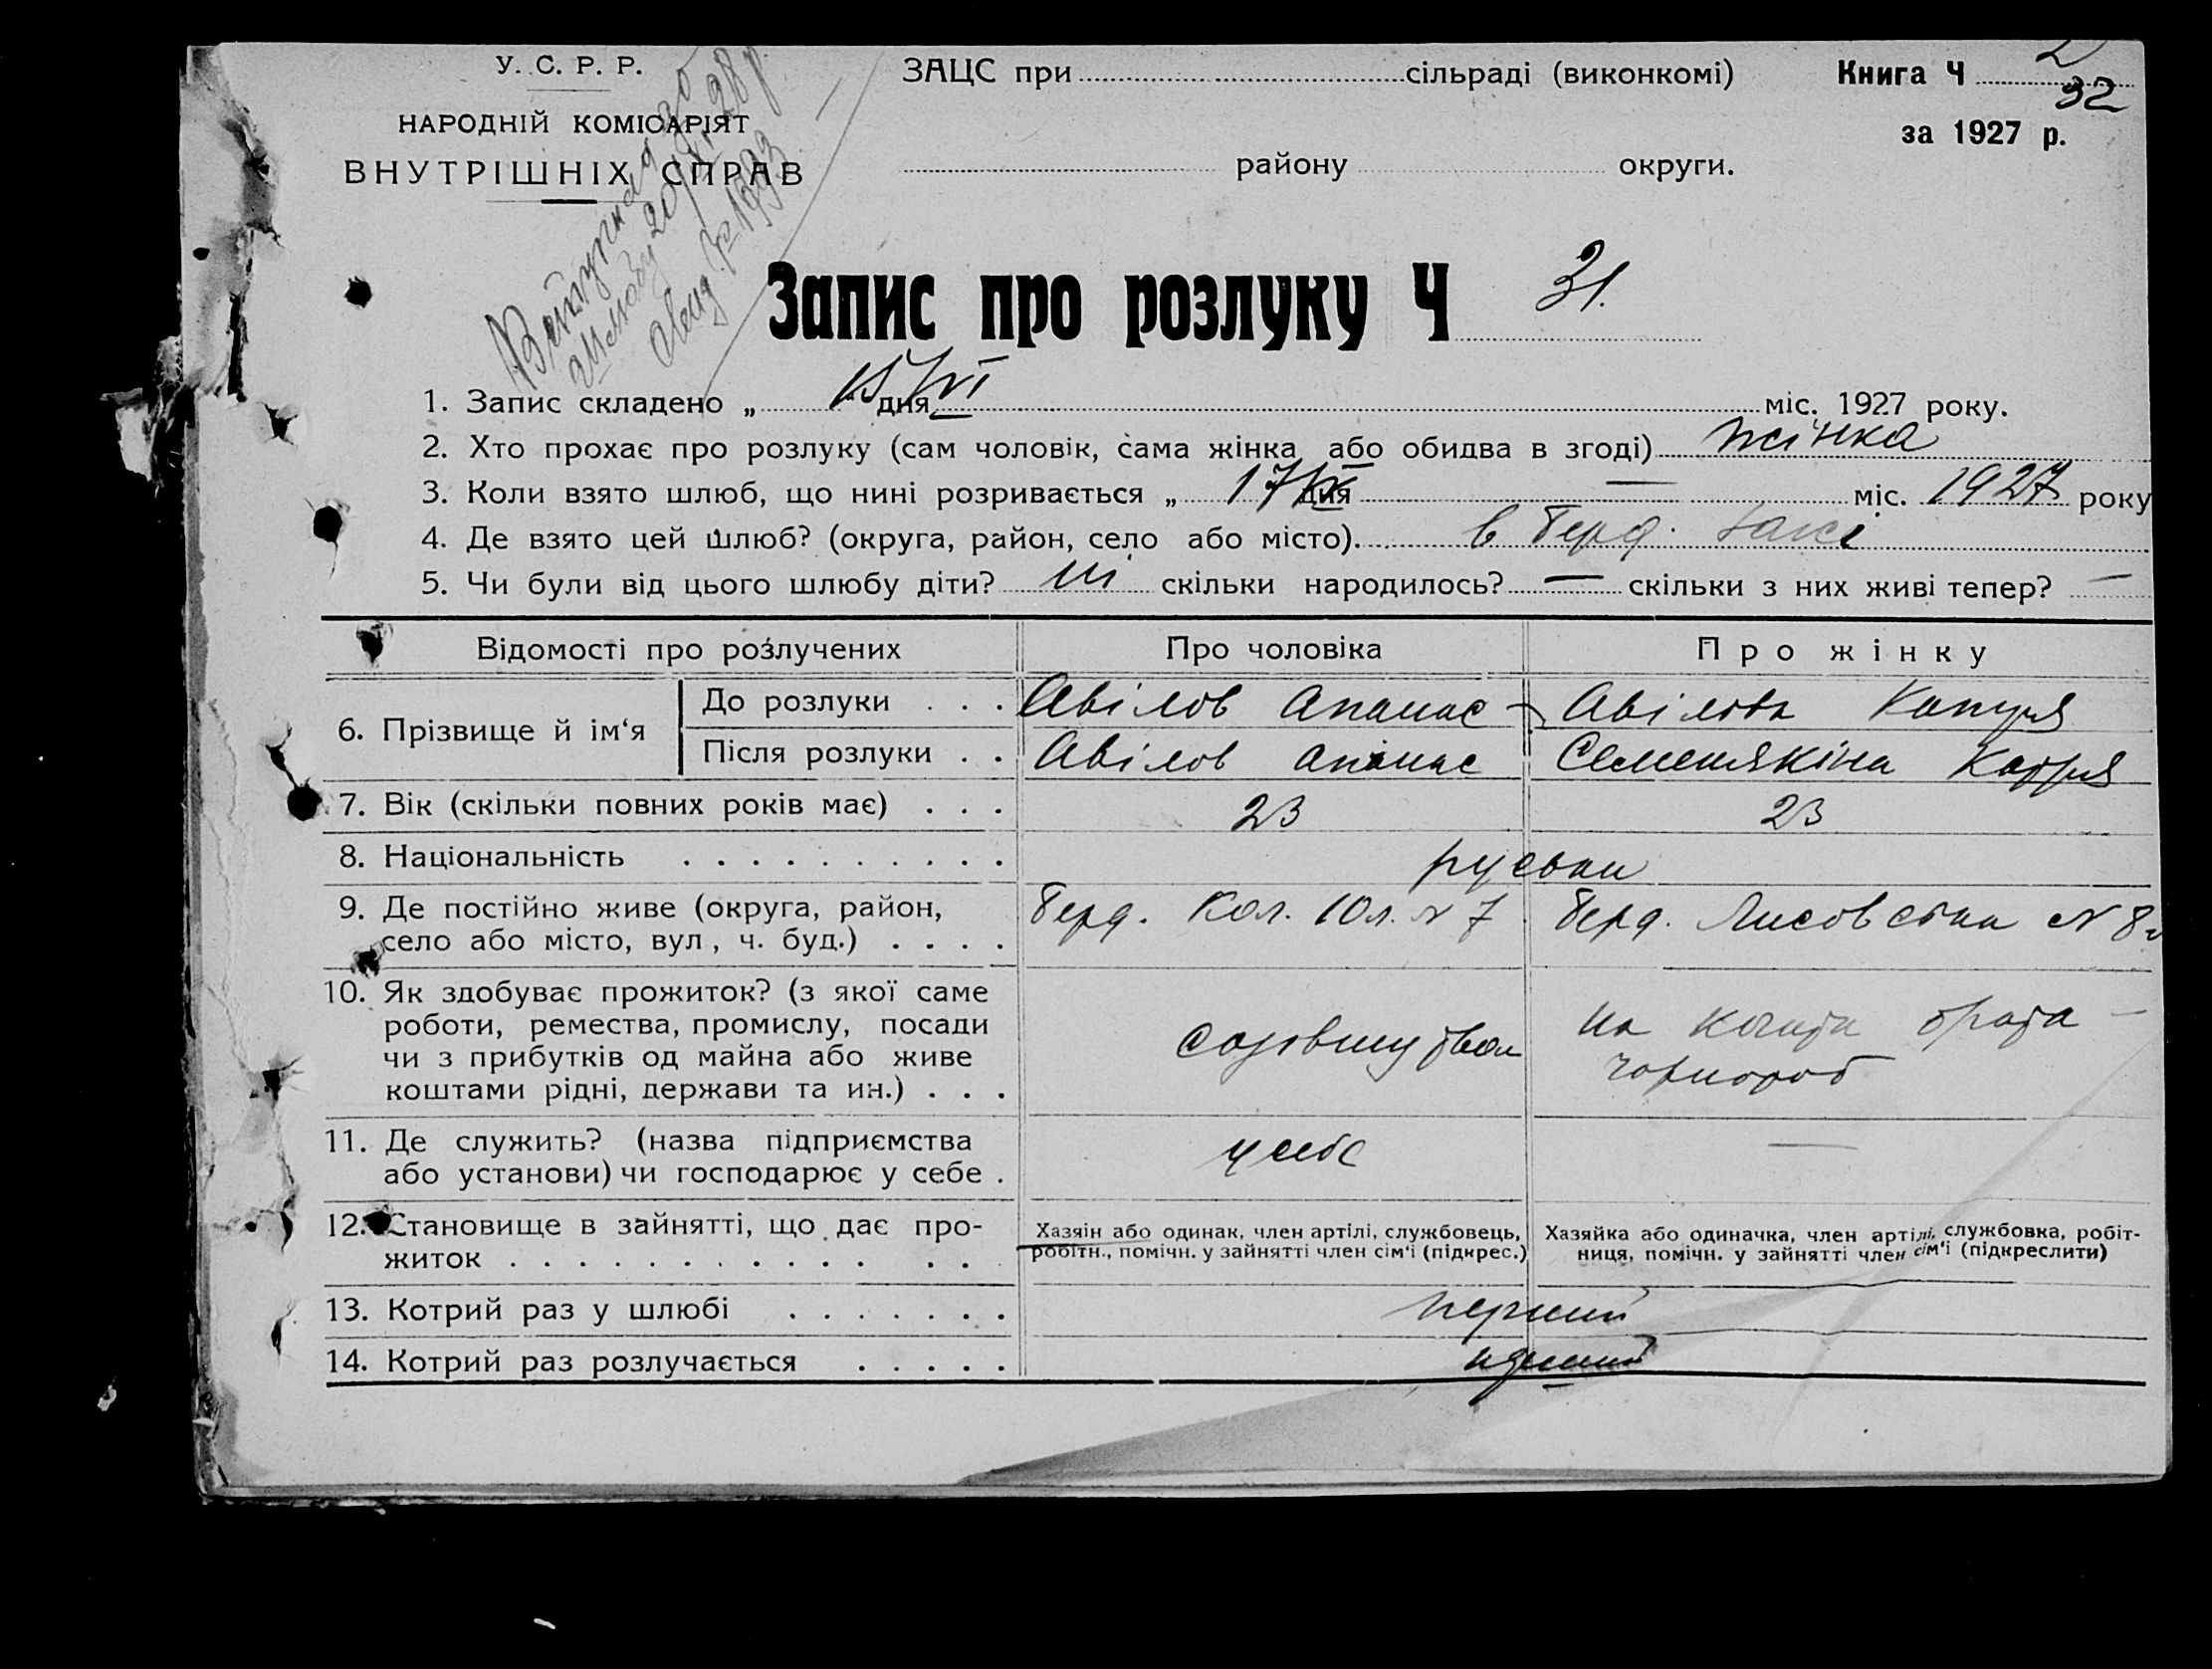 У. С. Р. Р.
НАРОДНІЙ КОМІСАРІЯТ
ВНУТРІШНІХ СПРАВ
ЗАЦС при сільраді (виконкомі)
району округи.
Книга Ч 2
32
за 1927 р.
20/VI 28 р.
№ 1993
Запис про розлуку Ч 31.
1. Запис складено „ 15/VI дня міс. 1927 року.
2. Хто прохає про розлуку (сам чоловік, сама жінка або обидва в згоді) жінка
3. Коли взято шлюб, що нині розривається „ 17/ дня — міс. 1927 року
4. Де взято цей шлюб? (округа, район, село або місто). в Берд. Загсі
5. Чи були від цього шлюбу діти? ні скільки народилось? — скільки з них живі тепер? —
Відомості про розлучених Про чоловіка Про жінку
6. Прізвище й ім‘я
До розлуки . . . Авілов Апанас Авілова Катря
Після розлуки . . Авілов Апанас Семенякіна Катря
7. Вік (скільки повних років має) . . . 23 23
8. Національність . . . . . . . . . . руськи
9. Де постійно живе (округа, район,
село або місто, вул, ч. буд.) . . . .
Берд. Кол. 10 л. № 7
Берд. Лисовстка № 8
10. Як здобуває прожиток? (з якої саме
роботи, ремества, промислу, посади
чи з прибутків од майна або живе
коштами рідні, держави та ин.) . . .
на кошти брата —
чорнороб
11. Де служить? (назва підприємства
або установи) чи господарює у себе .
у себе
—
12. Становище в зайнятті, що дає про-
житок . . . . . . . . . . . . . . .
Хазяін або одинак, член артілі, службовець,
робітн., помічн. у зайнятті член сім‘і (підкрес.)
Хазяйка або одиначка, член артілі, службовка, робіт-
ниця, помічн. у зайнятті член сім‘і (підкреслити)
13. Котрий раз у шлюбі . . . . . . . перший
14. Котрий раз розлучається . . . . . перший